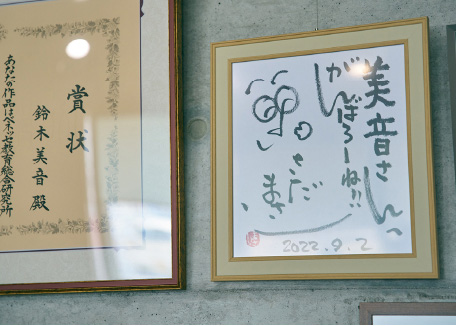 賞状
鈴木美音 殿
あなたの作品はベネッセ教育総合研究所
美音さんっ
がんばろーね!!
さだ
まさし
2022.9.2